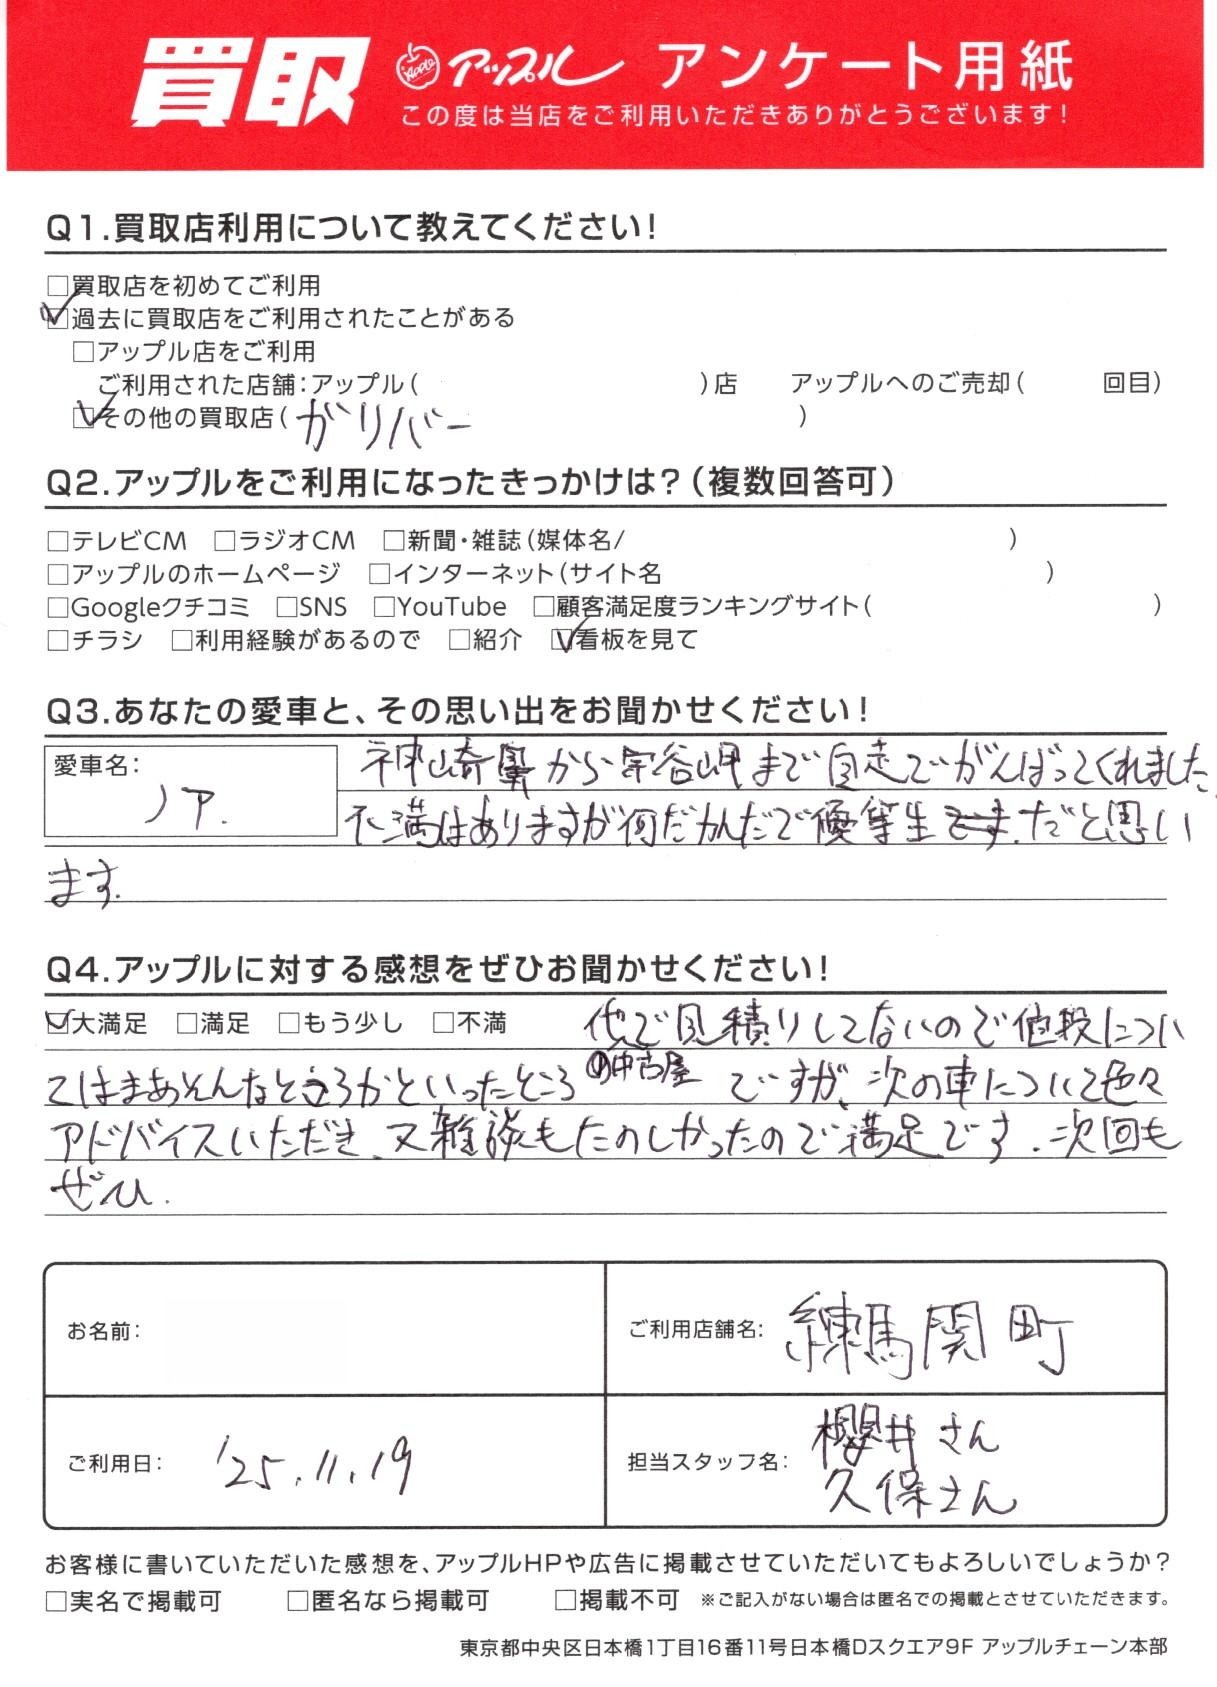 買取 Apple アップル アンケート用紙
この度は当店をご利用いただきありがとうございます!
Q1.買取店利用について教えてください!
□買取店を初めてご利用
☑過去に買取店をご利用されたことがある
□アップル店をご利用
ご利用された店舗:アップル( )店 アップルへのご売却( 回目)
☑その他の買取店(ガリバー )
Q2.アップルをご利用になったきっかけは?(複数回答可)
□テレビCM □ラジオCM □新聞・雑誌(媒体名/ )
□アップルのホームページ □インターネット(サイト名 )
□Googleクチコミ □SNS □YouTube □顧客満足度ランキングサイト( )
□チラシ □利用経験があるので □紹介 ☑看板を見て
Q3.あなたの愛車と、その思い出をお聞かせください!
愛車名: ノア.
神崎鼻から宗谷岬まで自走でがんばってくれました.
不満はありますが何だかんだで優等生です.だと思い
ます.
Q4.アップルに対する感想をぜひお聞かせください!
☑大満足 □満足 □もう少し □不満 他で見積りしてないので値段につい
の中古屋
てはまあそんなところかといったところ ですが、次の車について色々
アドバイスいただき、又雑談もたのしかったので満足です.次回も
ぜひ.
お名前: ご利用店舗名: 練馬関町
ご利用日: '25.11.19 担当スタッフ名: 櫻井さん
久保さん
お客様に書いていただいた感想を、アップルHPや広告に掲載させていただいてもよろしいでしょうか?
□実名で掲載可 □匿名なら掲載可 □掲載不可 ※ご記入がない場合は匿名での掲載とさせていただきます。
東京都中央区日本橋1丁目16番11号日本橋Dスクエア9F アップルチェーン本部